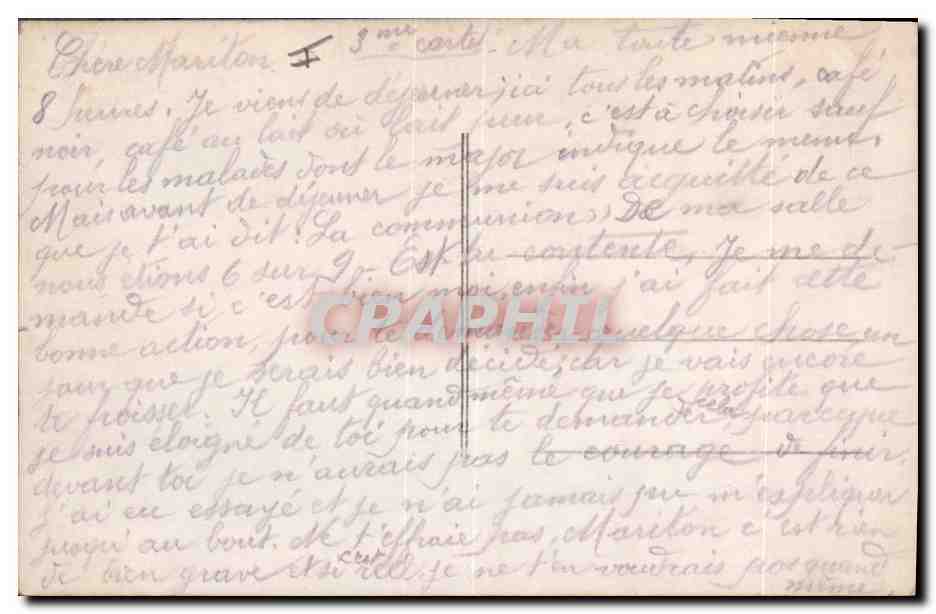 Chère Mariton. I 3me carte. Ma toute mienne
8 heures. Je viens de déjeuner, ici tous les matins, café
noir, café au lait où lait pur, c'est à choisir sauf
pour les malades dont le major indique le menu.
Mais avant de déjeuner je me suis acquitté de ce
que je t'ai dit: La communion,, De ma salle
nous étions 6 sur 9. Est tu contente, Je me de-
mande si c'est bien moi, enfin j'ai fait cette
bonne action, pour te demander quelque chose un
jour que je serais bien décidé, car je vais encore
te froisser. Il faut quand même que je profite que
je suis éloigné de toi pour te demander cela, parceque
devant toi je n'aurais pas le courage de finir.
j'ai eu essayé et je n'ai jamais pu m'expliquer
jusqu'au bout. Ne t'effraie pas, Mariton c'est rien
de bien grave et si c'est je ne t'en voudrais pas quand
même.
CPAPHIL